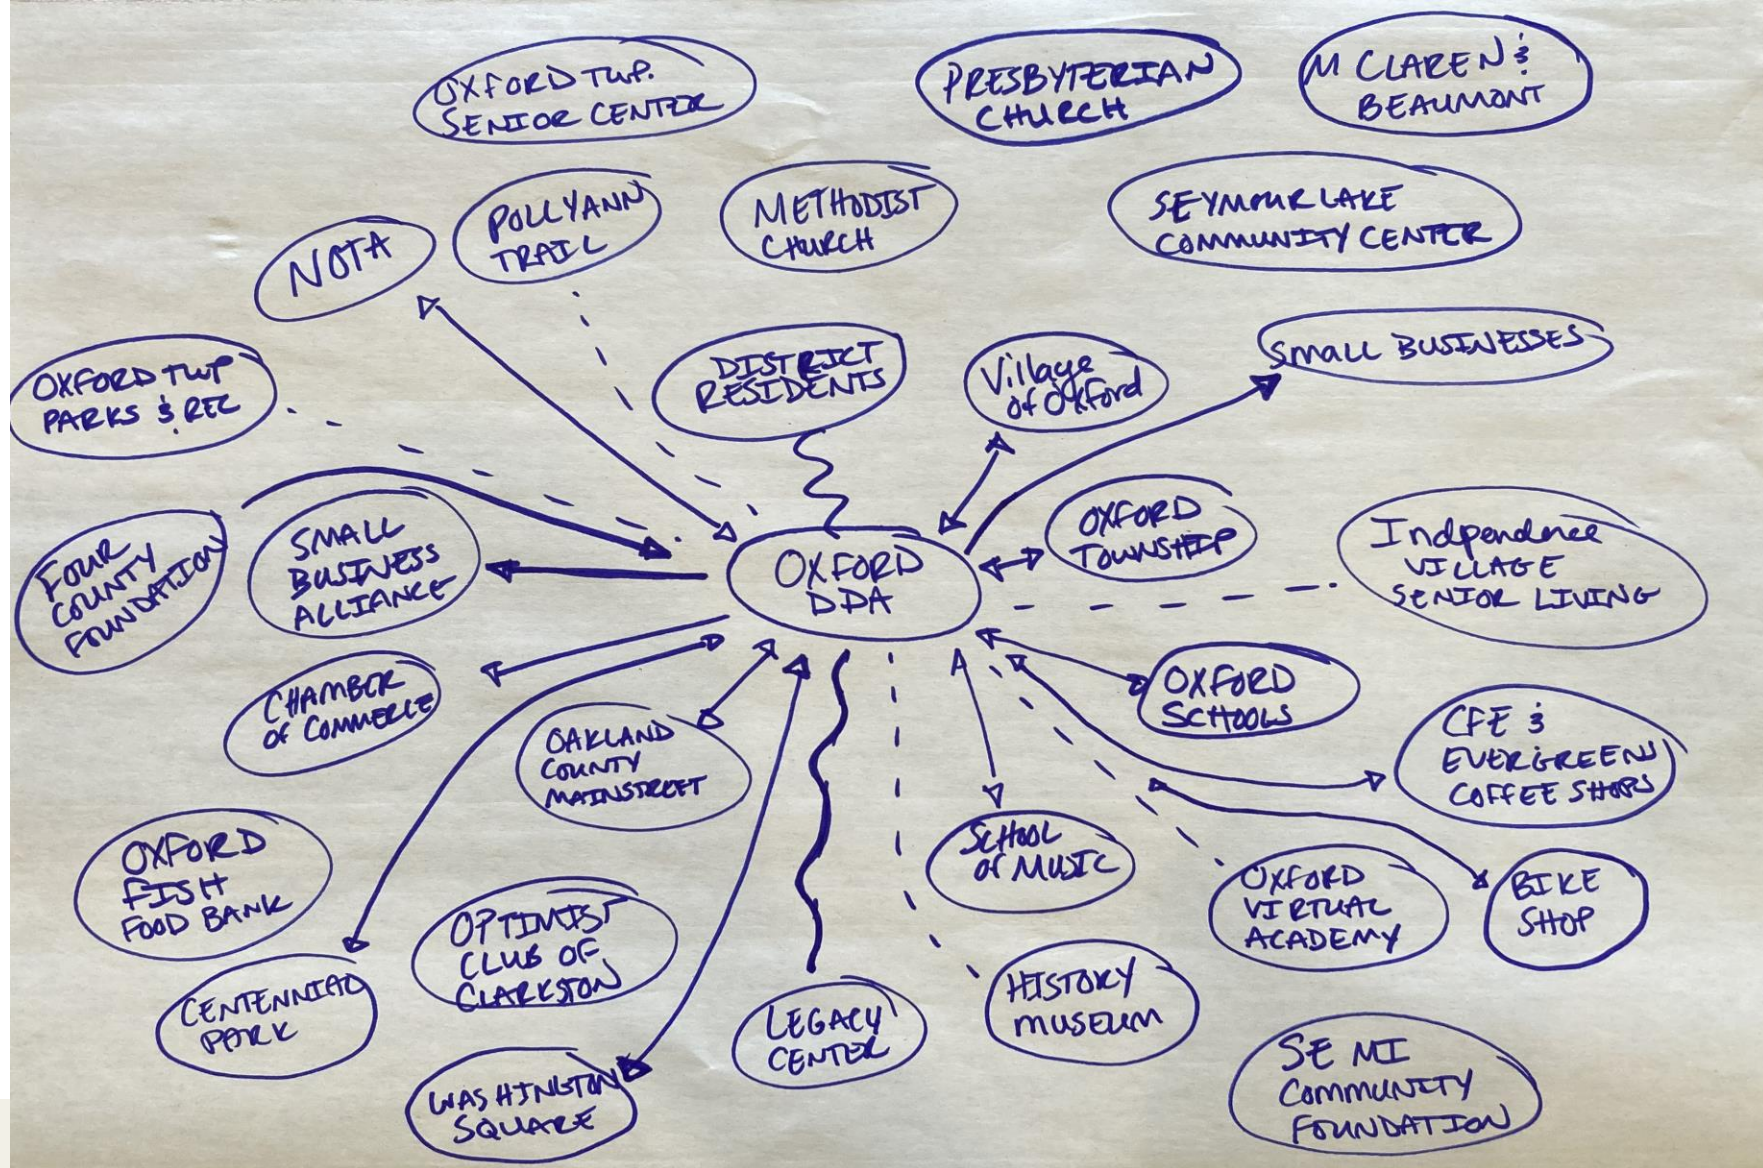 OXFORD TWP.
SENIOR CENTER
PRESBYTERIAN
CHURCH
MCLAREN &
BEAUMONT
NOTA
POLLYANN
TRAIL
METHODIST
CHURCH
SEYMOUR LAKE
COMMUNITY CENTER
OXFORD TWP
PARKS & REC
DISTRICT
RESIDENTS
Village
of Oxford
SMALL BUSINESSES
FOUR
COUNTY
FOUNDATION
SMALL
BUSINESS
ALLIANCE
OXFORD
DDA
OXFORD
TOWNSHIP
Independence
VILLAGE
SENIOR LIVING
CHAMBER
OF COMMERCE
OAKLAND
COUNTY
MAINSTREET
OXFORD
SCHOOLS
CFE &
EVERGREENS
COFFEE SHOPS
OXFORD
FISH
FOOD BANK
OPTIMIST
CLUB OF
CLARKSTON
SCHOOL
OF MUSIC
OXFORD
VIRTUAL
ACADEMY
BIKE
SHOP
CENTENNIAL
PARK
WASHINGTON
SQUARE
LEGACY
CENTER
HISTORY
MUSEUM
SE MI
COMMUNITY
FOUNDATION